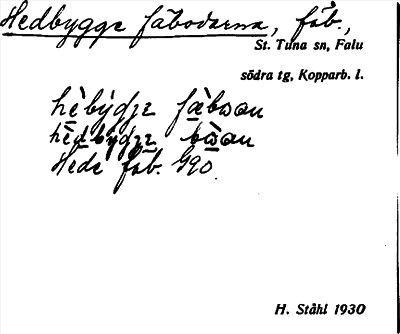 Hedbygge fäbodarna, fäb.,
St. Tuna sn, Falu
södra tg, Kopparb. l.
hèbýdjɛ fæ̀bɷan
hèdbýdjɛ bɷ̀an
Hede fäb. G90.
H. Ståhl 1930